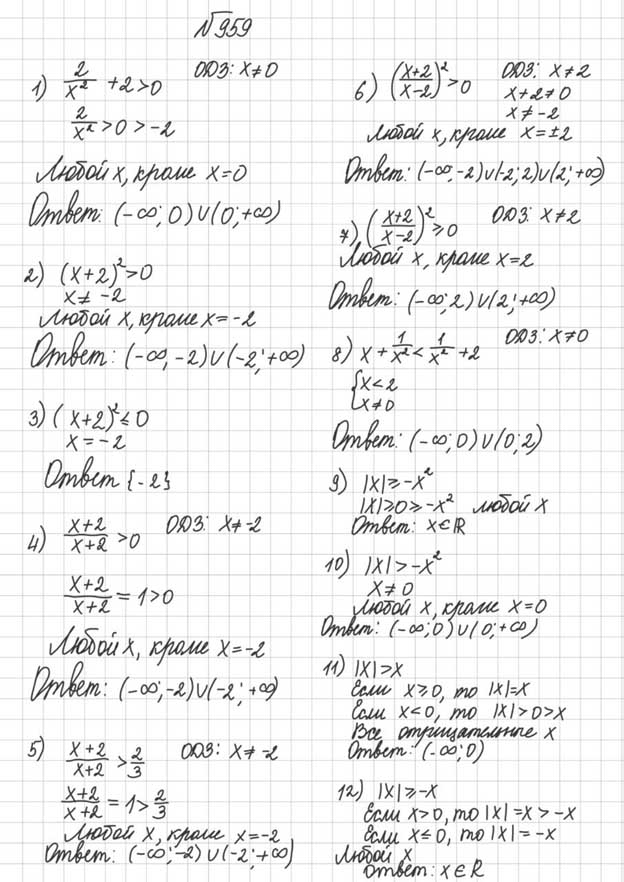 №959
1) 2/x² + 2 > 0 ОДЗ: x ≠ 0
2/x² > 0 > -2
Любой x, кроме x = 0
Ответ: (-∞; 0) ∪ (0; +∞)
2) (x+2)² > 0
x ≠ -2
Любой x, кроме x = -2
Ответ: (-∞, -2) ∪ (-2; +∞)
3) (x+2)² ≤ 0
x = -2
Ответ {-2}
4) (x+2)/(x+2) > 0 ОДЗ: x ≠ -2
(x+2)/(x+2) = 1 > 0
Любой x, кроме x = -2
Ответ: (-∞; -2) ∪ (-2; +∞)
5) (x+2)/(x+2) > 2/3 ОДЗ: x ≠ -2
(x+2)/(x+2) = 1 > 2/3
Любой x, кроме x = -2
Ответ: (-∞; -2) ∪ (-2; +∞)
6) ((x+2)/(x-2))² > 0 ОДЗ: x ≠ 2
x+2 ≠ 0
x ≠ -2
Любой x, кроме x = ±2
Ответ: (-∞, -2) ∪ (-2; 2) ∪ (2; +∞)
7) ((x+2)/(x-2))² ≥ 0 ОДЗ: x ≠ 2
Любой x, кроме x = 2
Ответ: (-∞; 2) ∪ (2; +∞)
8) x + 1/x² < 1/x² + 2 ОДЗ: x ≠ 0
{x < 2
x ≠ 0
Ответ: (-∞; 0) ∪ (0; 2)
9) |x| ≥ -x²
|x| ≥ 0 ≥ -x² любой x
Ответ: x ∈ ℝ
10) |x| > -x²
x ≠ 0
Любой x, кроме x = 0
Ответ: (-∞; 0) ∪ (0; +∞)
11) |x| > x
Если x ≥ 0, то |x| = x
Если x < 0, то |x| > 0 > x
Все отрицательные x
Ответ: (-∞; 0)
12) |x| ≥ -x
Если x > 0, то |x| = x > -x
Если x ≤ 0, то |x| = -x
Любой x
Ответ: x ∈ R